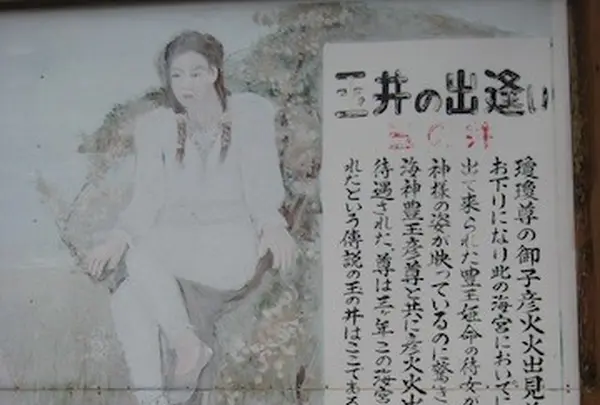 玉井の出逢い
玉の井
瓊瓊尊の御子彦火火出見
お下りになり此の海宮において
出て来られた豊玉姫命の待女が
神様の姿が映っているのに驚き
海神豊玉彦尊と共に彦火火出
待遇された、尊は三ヶ年この海宮
れたという傳説の玉の井はここである